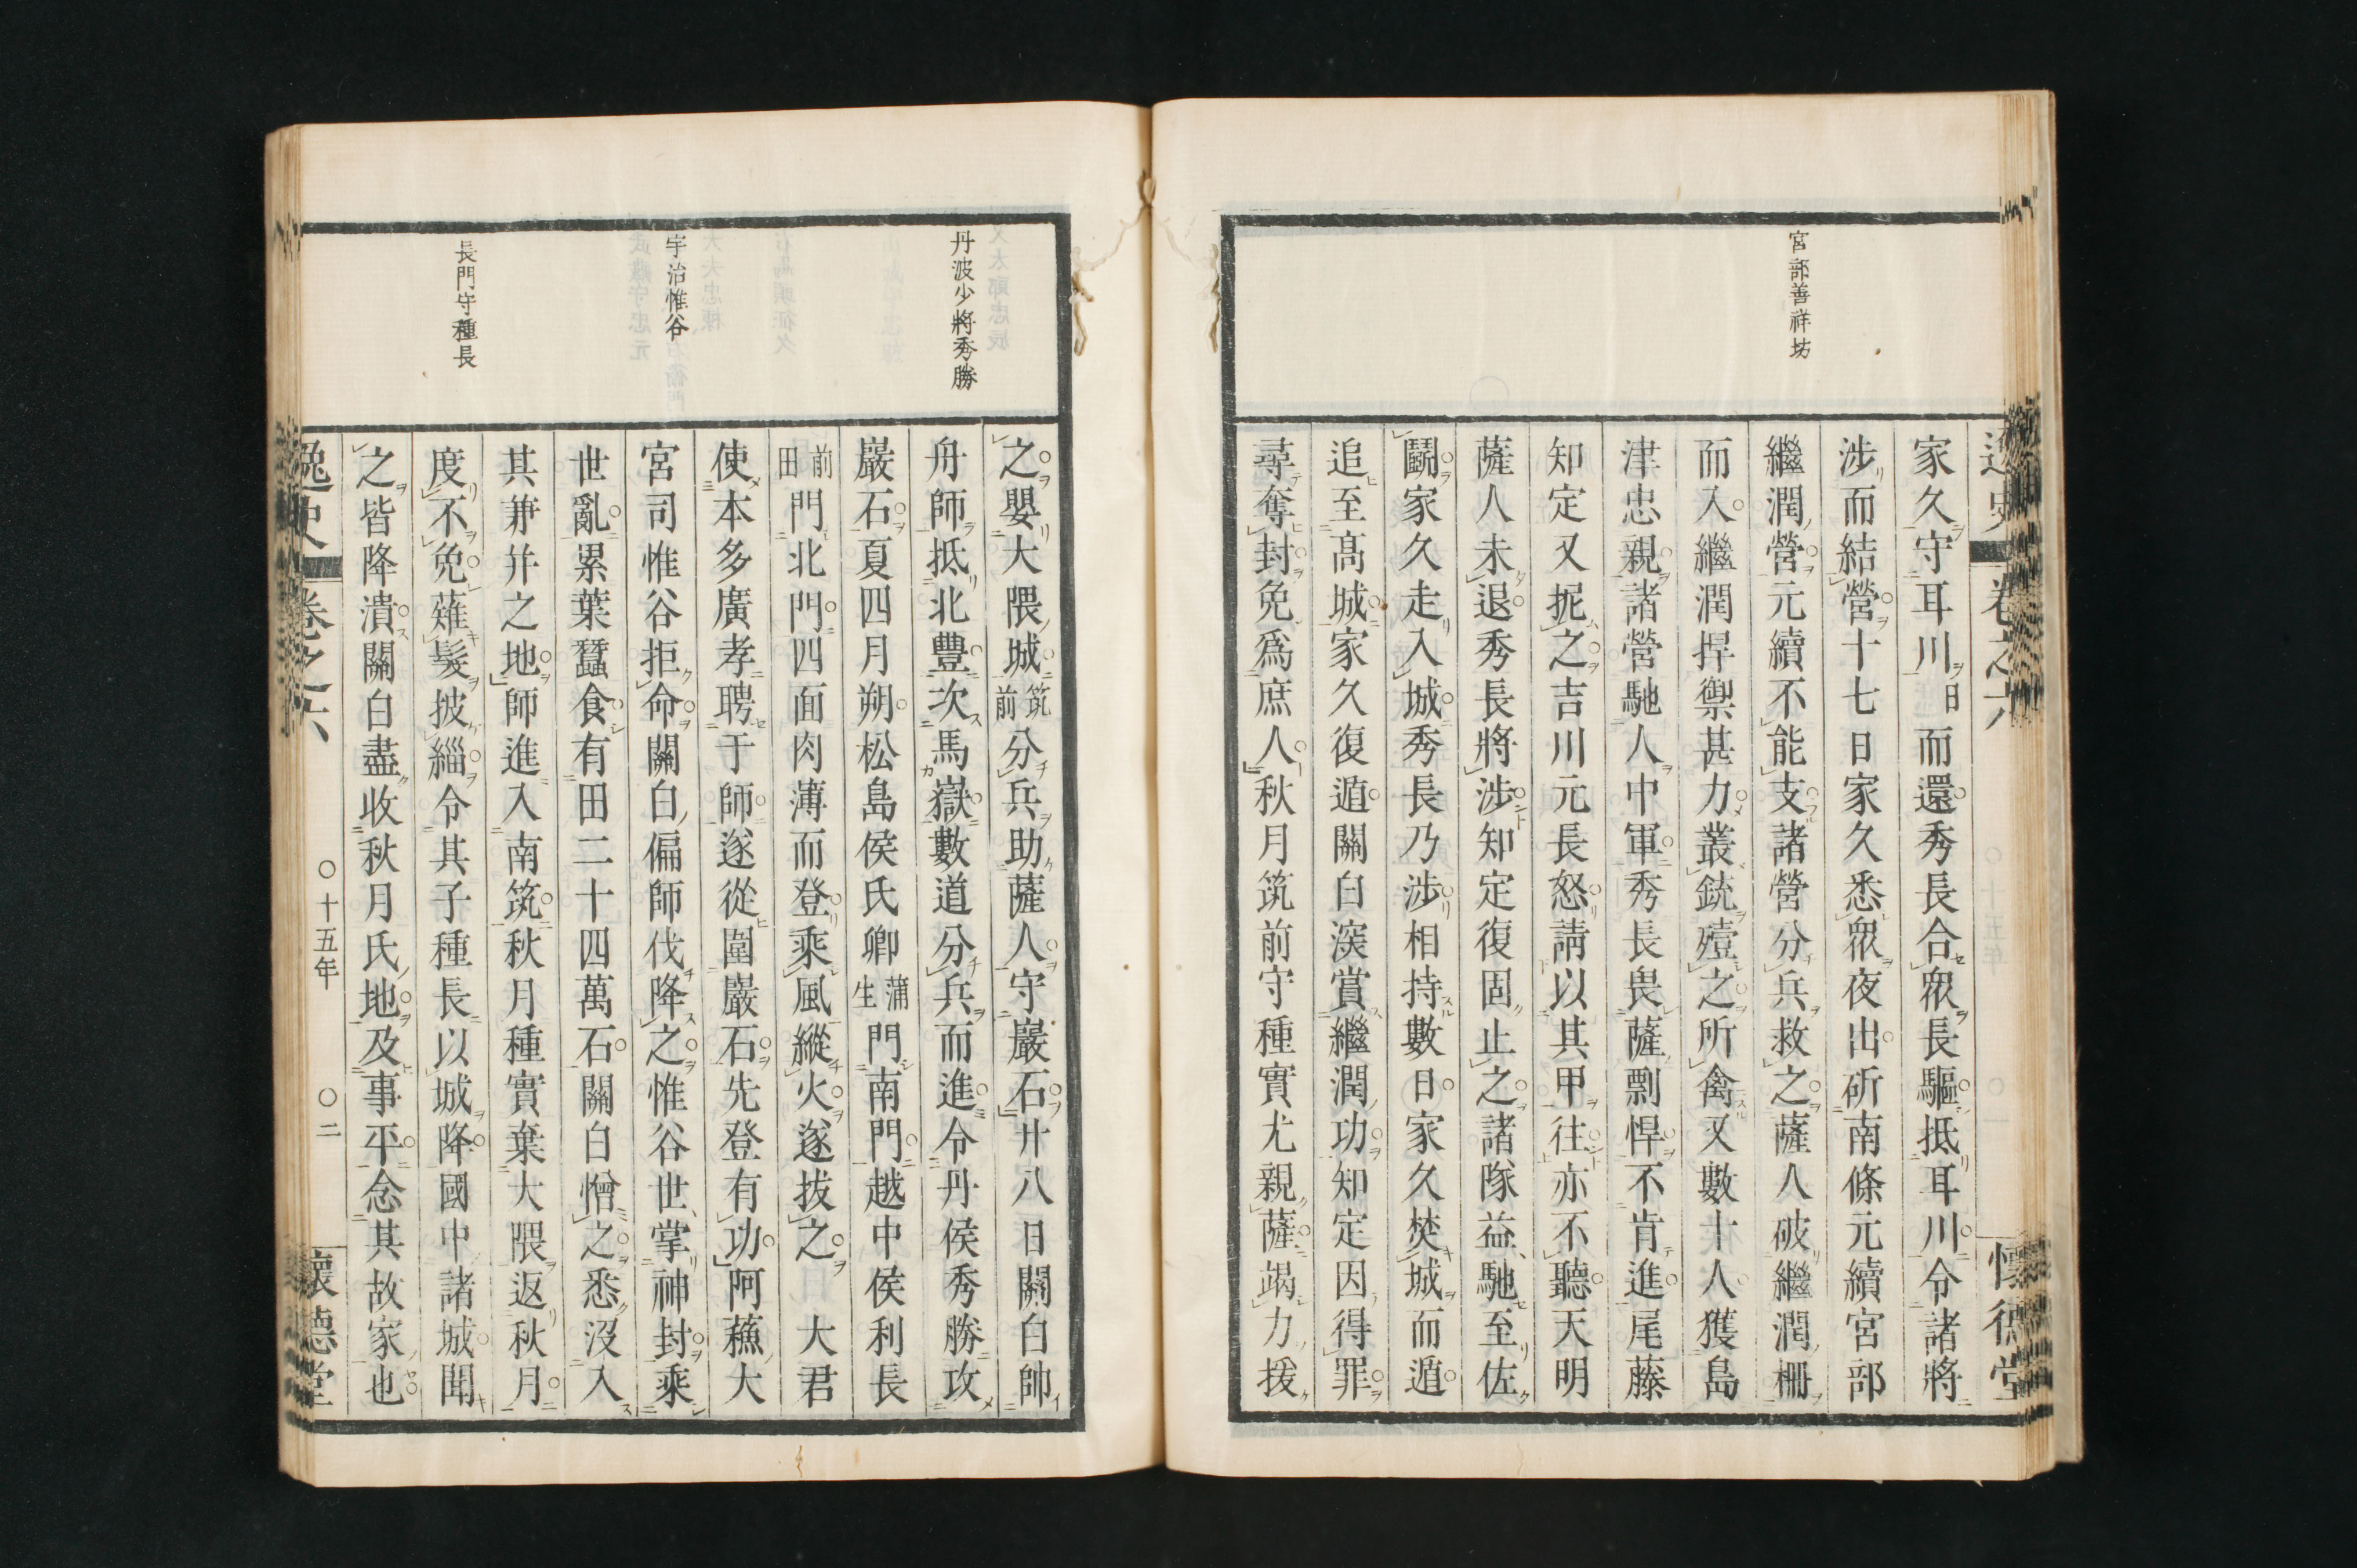 宮部善祥坊
家久守耳川日而還秀長合衆長驅抵耳川令諸將
涉而結營十七日家久悉衆夜出斫南條元續宮部
繼潤營元續不能支諸營分兵救之薩人破繼潤柵
而入繼潤捍禦甚力叢銃殪之所禽又數十人獲島
津忠親諸營馳人中軍秀長畏薩剽悍不肯進尾藤
知定又抳之吉川元長怒請以其甲往亦不聽天明
薩人未退秀長將涉知定復固止之諸隊益馳至佐
鬭家久走入城秀長乃涉相持數日家久焚城而遁
追至髙城家久復遁關白深賞繼潤功知定因得罪
尋奪封免爲庶人秋月筑前守種實尤親薩竭力援
丹波少將秀勝
宇治惟谷
長門守種長
之嬰大隈城筑前分兵助薩人守巖石廿八日關白帥
舟師抵北豐次馬嶽數道分兵而進令丹侯秀勝攻
巖石夏四月朔松島侯氏卿蒲生門南門越中侯利長
前田門北門四面肉薄而登乘風縱火遂拔之　大君
使本多廣孝聘于師遂從圍巖石先登有功阿蘇大
宮司惟谷拒命關白偏師伐降之惟谷世掌神封乘
世亂累葉蠶食有田二十四萬石關白憎之悉沒入
其兼并之地師進入南筑秋月種實棄大隈返秋月
度不免薙髮披緇令其子種長以城降國中諸城聞
之皆降潰關白盡收秋月氏地及事平念其故家也
逸史　卷之六　〇十五年　〇二　懷德堂